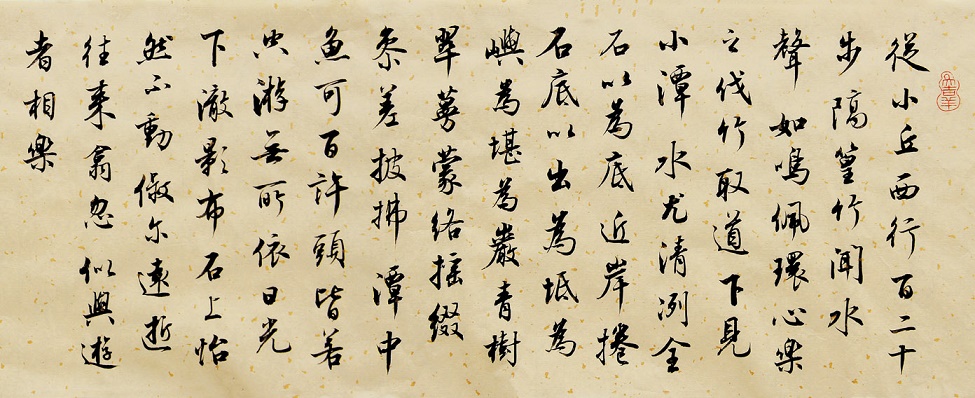 從小丘西行百二十
步隔篁竹聞水
聲如鳴佩環心樂
之伐竹取道下見
小潭水尤清冽全
石以為底近岸捲
石底以出為坻為
嶼為堪為巖青樹
翠蔓蒙絡搖綴
參差披拂潭中
魚可百許頭皆若
空游無所依日光
下澈影布石上怡
然不動俶尔遠逝
往來翕忽似與遊
者相樂